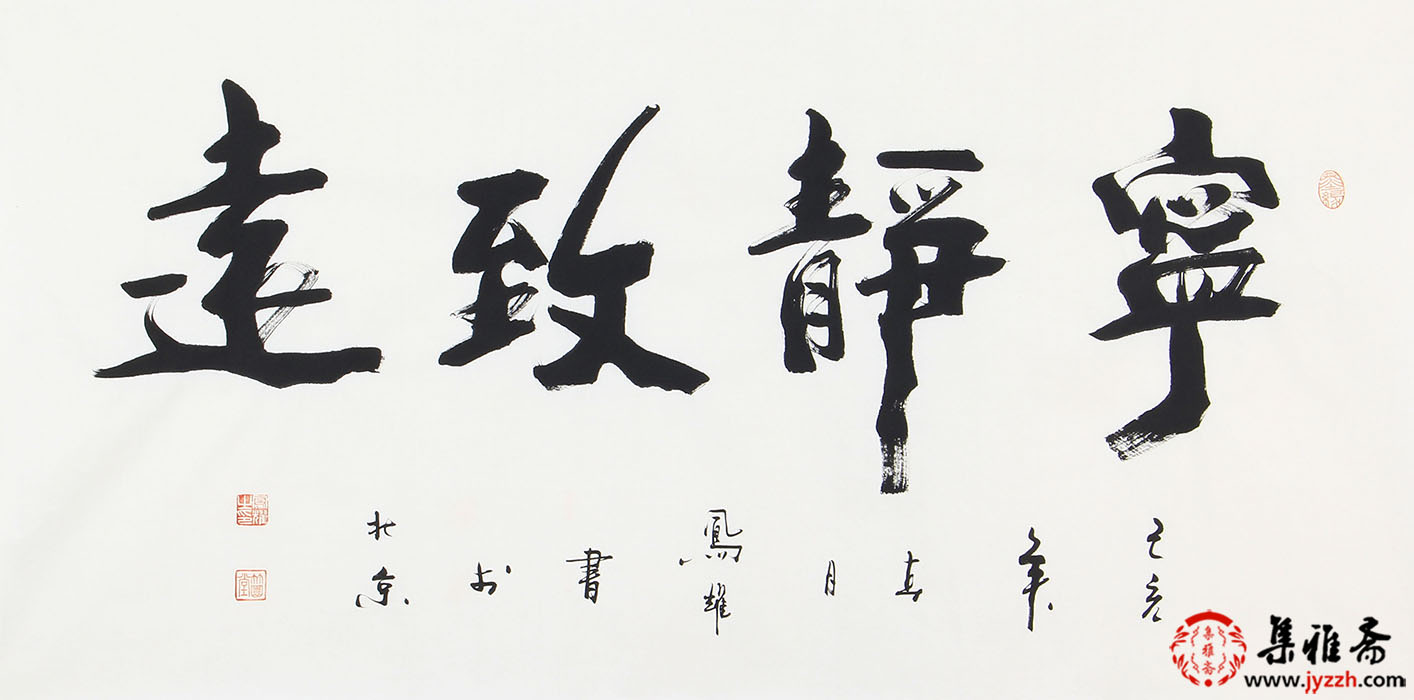 寧靜致遠
己亥年
月
鳳耀
書於
北京
集雅斋
www.jyzzh.com